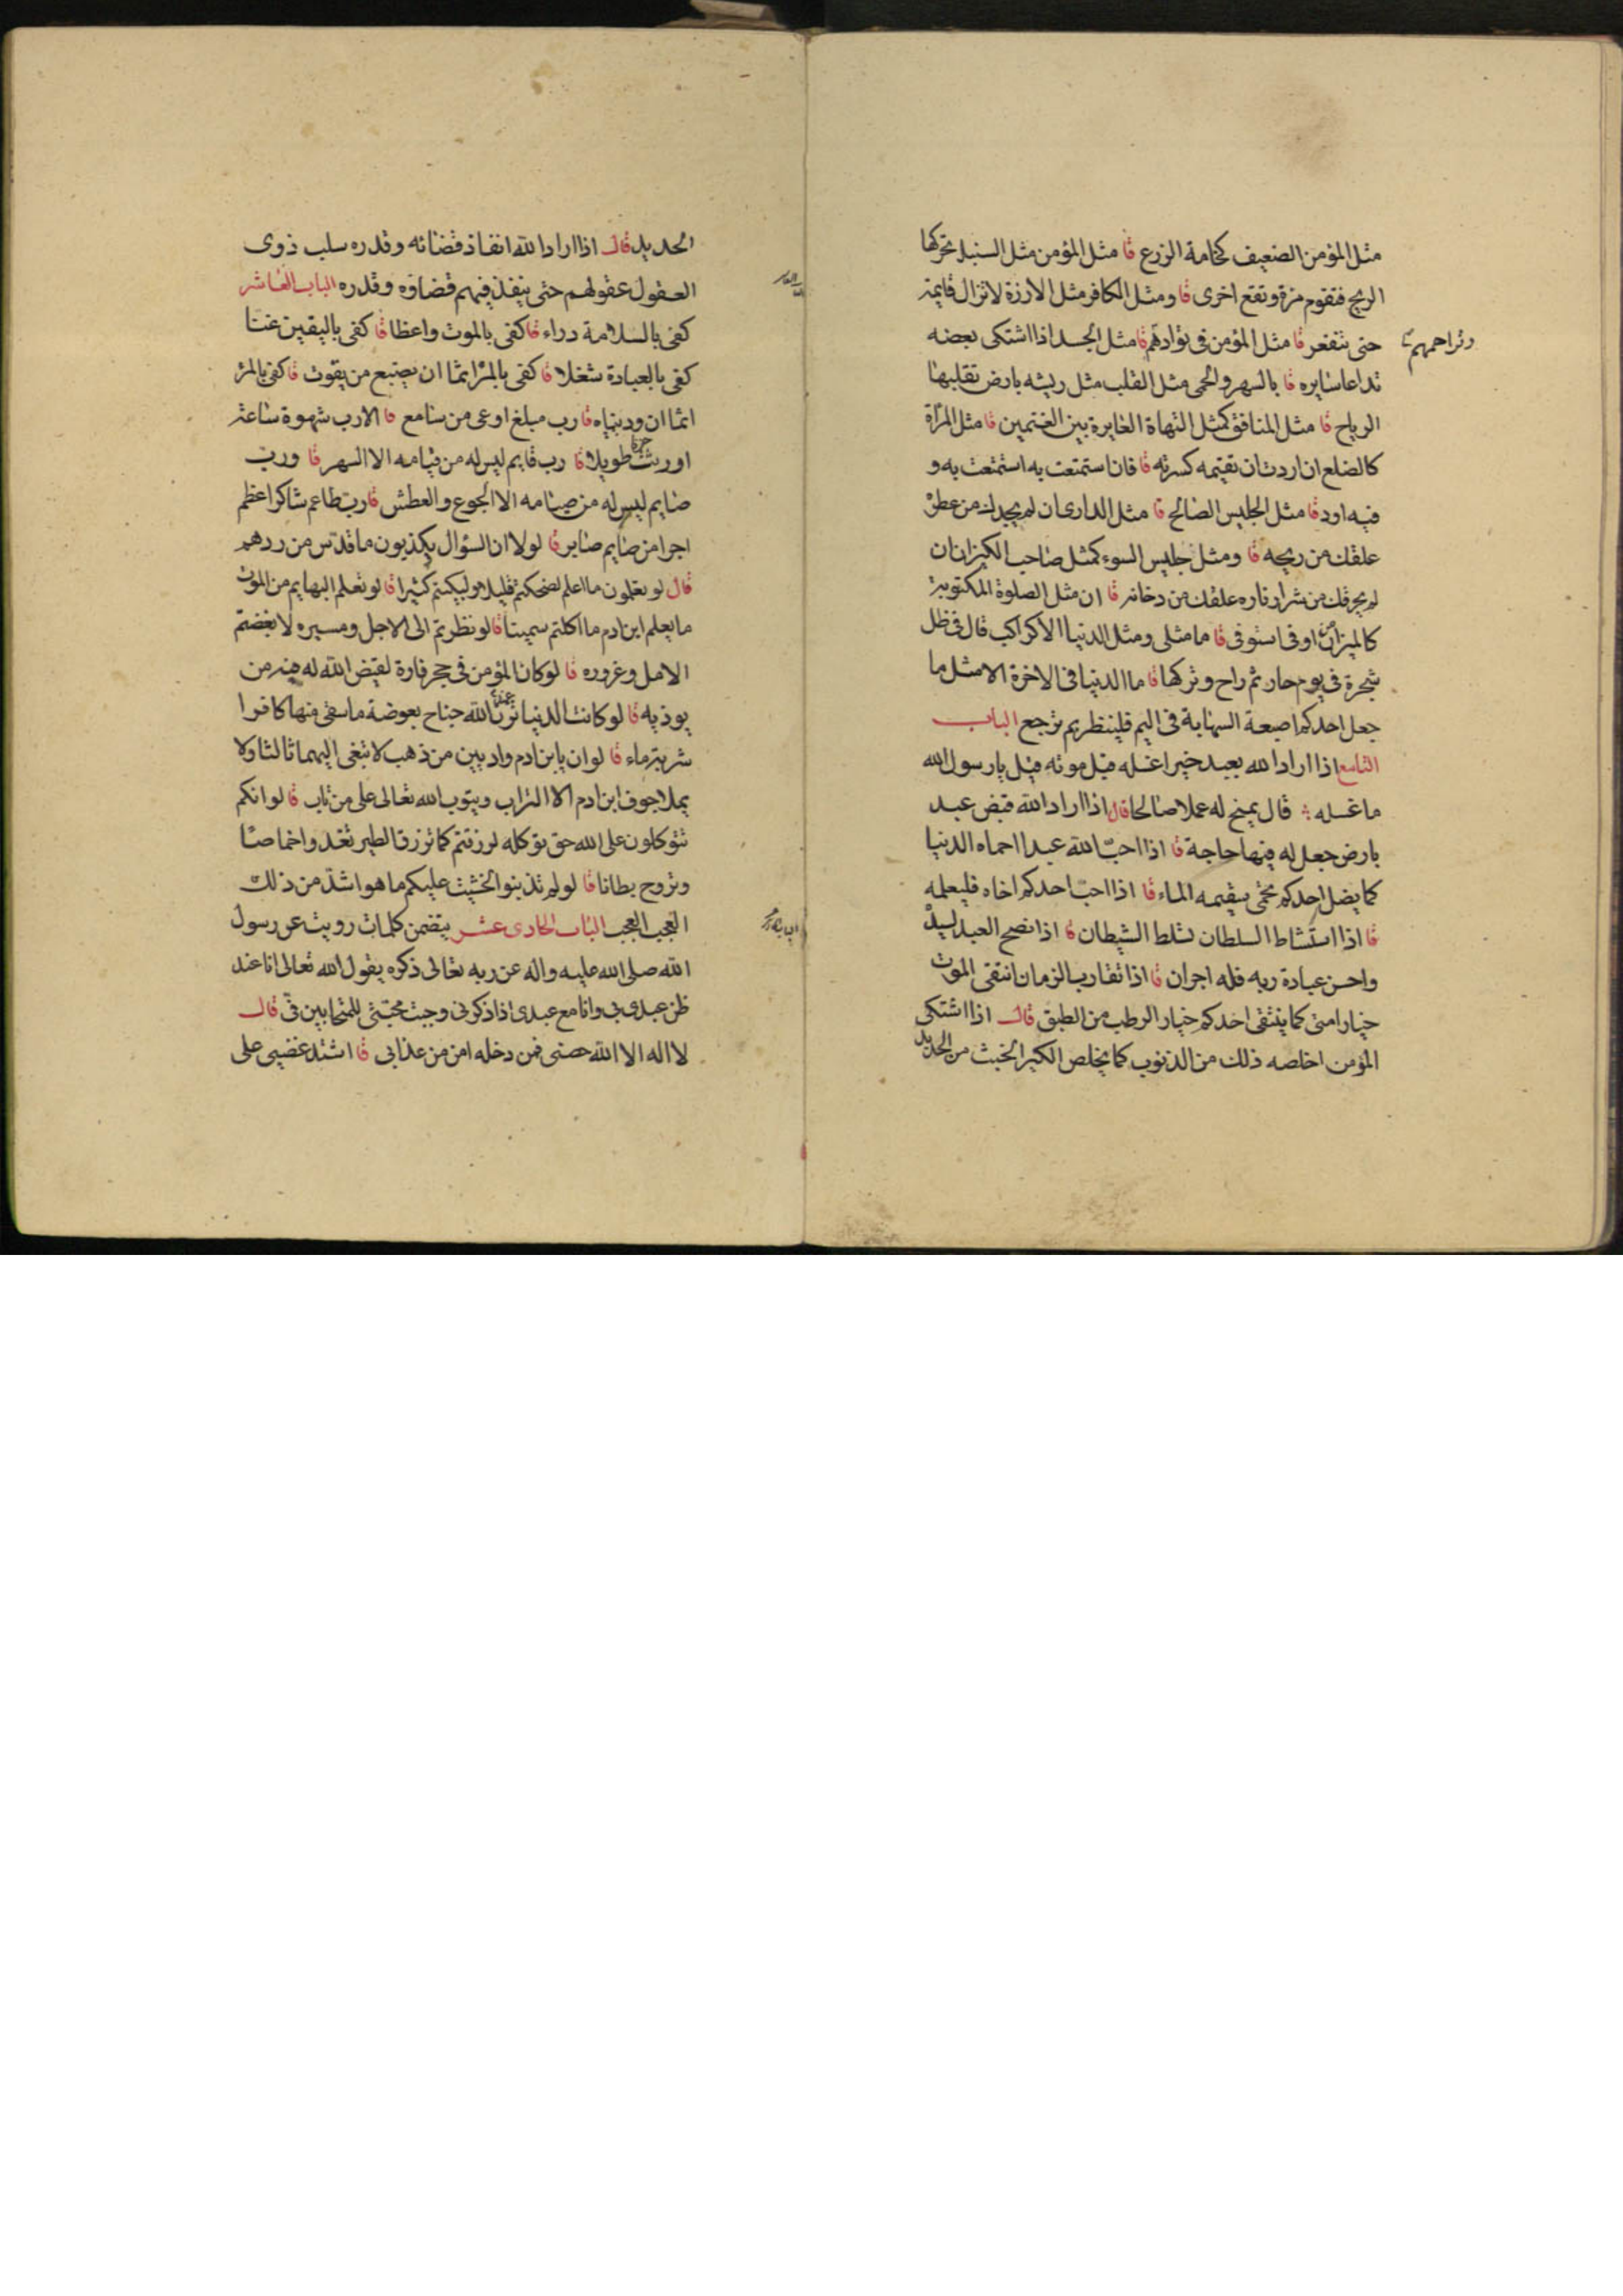 مثل المؤمن الضعيف كخامة الزرع قا مثل المؤمن مثل السنبل تحركها
الريح فتقوم مرة وتقع اخرى قا ومثل الكافر مثل الارزة لا تزال قايمة
حتى تنقعر قا مثل المؤمن فى توادهم قا مثل الجسد اذا اشتكى بعضه
وتراحمهم
تداعا سايره قا بالسهر والحمى مثل القلب مثل ريشه بارض تقلبها
الرياح قا مثل المنافق كمثل الشاة الغايرة بين الغنمين قا مثل المرأة
كالضلع ان اردت ان تقيمه كسرته قا فان استمتعت به استمتعت به و
فيه اود قا مثل الجليس الصالح قا مثل الدارى ان لم يجدك من عطره
علقك من ريحه قا ومثل جليس السوء كمثل صاحب الكير ان ان
لم يحرقك من شرار ناره علقك من دخانه قا ان مثل الصلوة المكتوبة
كالميزان من اوفى استوفى قا ما مثلى ومثل الدنيا الا كراكب قال فى ظل
شجرة فى يوم حار ثم راح وتركها قا ما الدنيا فى الاخرة الا مثل ما
جعل احدكم اصبعه السبابة فى اليم فلينظر بم ترجع الباب
التاسع اذا اراد الله بعبد خيرا غسله قبل موته قيل يا رسول الله
ما غسله قال يمنح له عملا صالحا قال اذا اراد الله قبض عبد
بارض جعل له فيها حاجة قا اذا احب الله عبدا احماه الدنيا
كما يضل احدكم يحمى سقيمه الماء قا اذا احب احدكم اخاه فليعلمه
قا اذا استشاط السلطان تسلط الشيطان قا اذا نصح العبد لسيده
واحسن عبادة ربه فله اجران قا اذا تقارب الزمان انتقى الموت
خيار امتى كما ينتقى احدكم خيار الرطب من الطبق قال اذا اشتكى
المؤمن اخلصه ذلك من الذنوب كما يخلص الكير الخبث من الحديد
الحديد قال اذا اراد الله انفاذ قضائه وقدره سلب ذوى
العقول عقولهم حتى ينفذ فيهم قضاؤه وقدره الباب العاشر
كفى بالسلامة داء قا كفى بالموت واعظا قا كفى باليقين غنا
كفى بالعبادة شغلا قا كفى بالمرء اثما ان يضيع من يقوت قا كفى بالمرء
اثما ان ودينياه قا رب مبلغ اوعى من سامع قا الا رب شهوة ساعة
اورثت حزنا طويلا قا رب قايم ليس له من قيامه الا السهر قا ورب
صايم ليس له من صيامه الا الجوع والعطش قا رب طاعم شاكر اعظم
اجرا من صايم صابر قا لولا ان السؤال يكذبون ما قدس من ردهم
قال لو تعلمون ما اعلم لضحكتم قليلا ولبكيتم كثيرا قا لو تعلم البهايم من الموت
ما يعلم ابن ادم ما اكلتم سمينا قا لو نظرتم الى الاجل ومسيره لابغضتم
الامل وغروره قا لو كان المؤمن فى جحر فارة لقيض الله له فيه من
يوذيه قا لو كانت الدنيا تزن عند الله جناح بعوضة ما سقى منها كافرا
شربة ماء قا لو ان يابن ادم واديين من ذهب لا تبغى اليهما ثالثا ولا
يملا جوف ابن ادم الا التراب ويتوب الله تعالى على من تاب قا لو انكم
تتوكلون على الله حق توكله لرزقتم كما ترزق الطير تغدوا خماصا
وتروح بطانا قا لو لم تذنبوا لخشيت عليكم ما هو اشد من ذلك
العجب العجب الباب الحادى عشر يتضمن كلمات رويت عن رسول
الله صلى الله عليه واله عن ربه تعالى ذكره يقول الله تعالى انا عند
ظن عبدى بى وانا مع عبدى اذا ذكرنى وجبت محبتى للمتحابين فى قال
لا اله الا الله حصنى فمن دخله امن من عذابى قا اشتد غضبى على